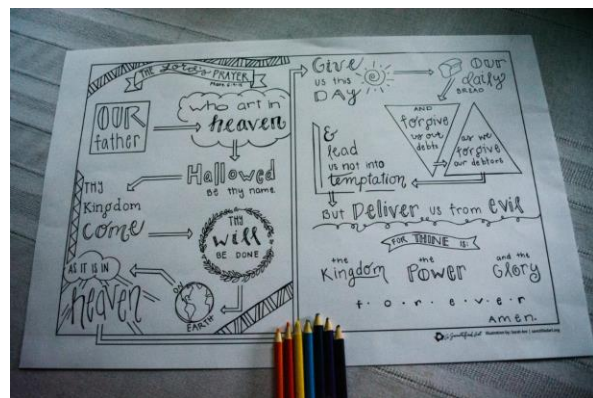 THE Lord's PRAYER
OUR
father
who art in
heaven
Hallowed
BE thy name
THY
Kingdom
come
THY
will
BE DONE
ON
EARTH
AS IT IS IN
heaven
Give
us this
DAY
OUR
daily
BREAD
AND
forgive
us our
debts
as we
forgive
our debtors
&
lead
us not into
temptation
But Deliver us from evil
FOR THINE IS:
the
Kingdom
the
POWER
and the
Glory
f·o·r·e·v·e·r
Amen.